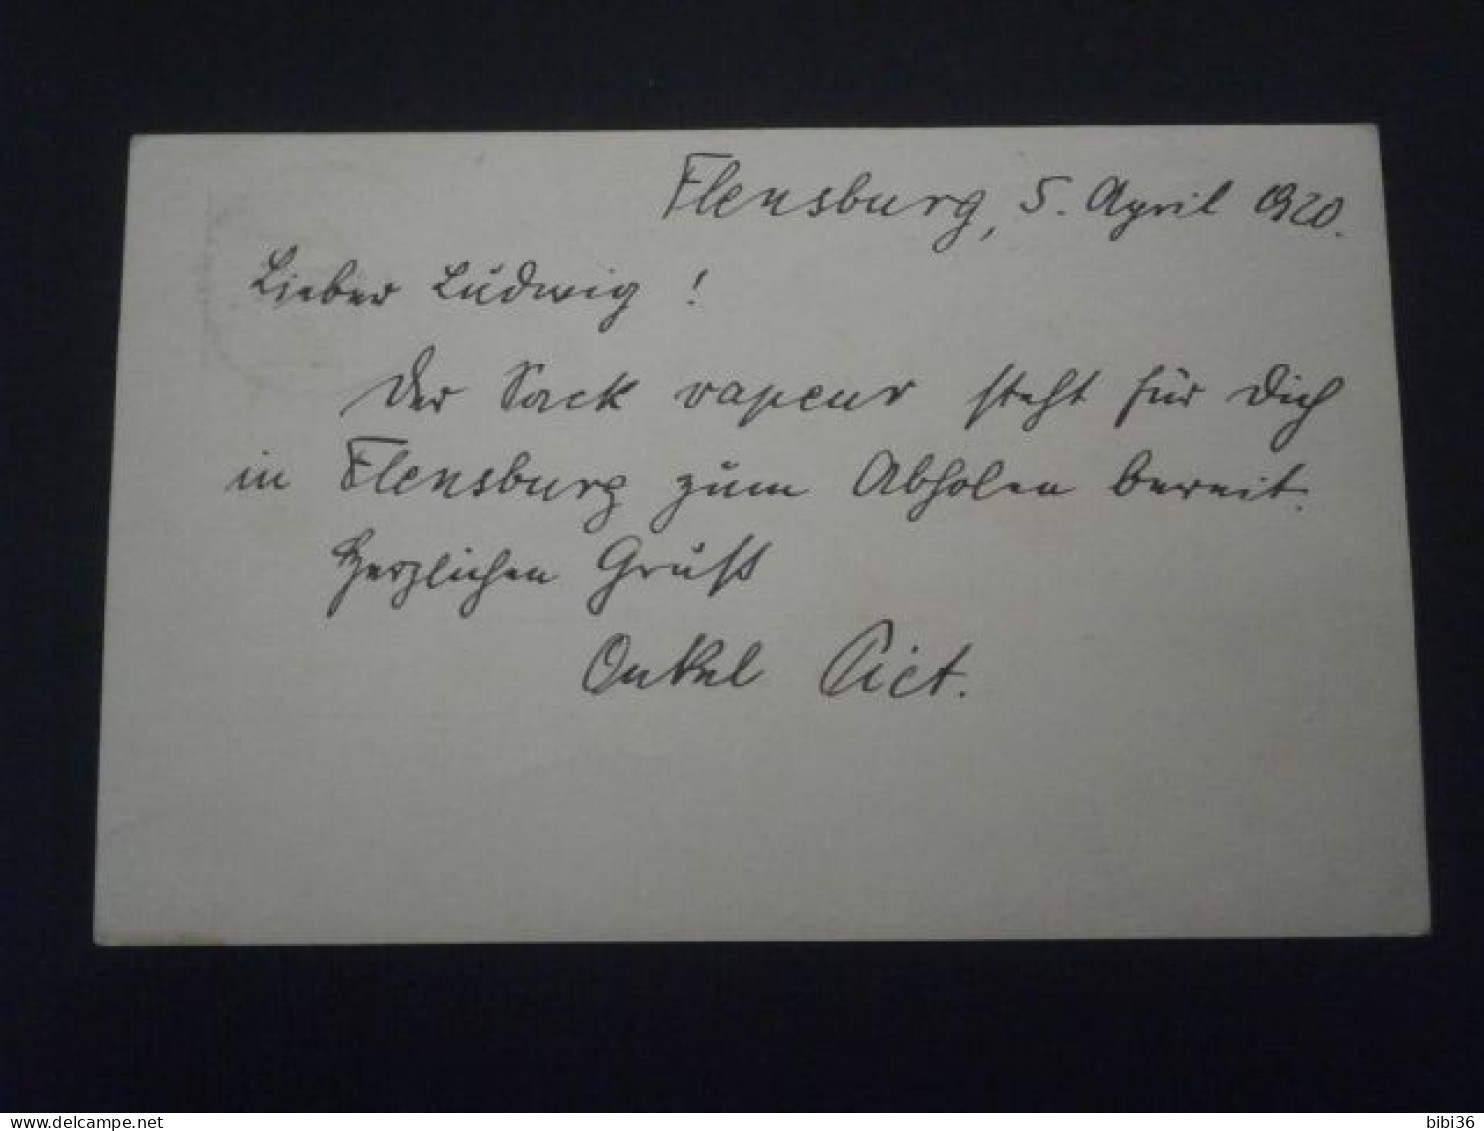 Flensburg, 5. April 1920.
Lieber Ludwig!
Der Sack vapeur steht für Dich
in Flensburg zum Abholen bereit.
Herzlichen Gruß
Onkel
www.delcampe.net
bibi36